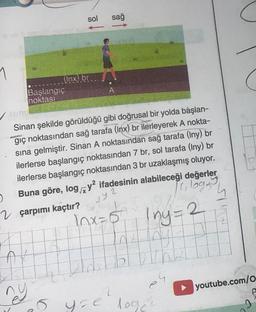 sol sağ
(lnx) br
Başlangıç
noktası
A
Sinan şekilde görüldüğü gibi doğrusal bir yolda başlan-
gıç noktasından sağ tarafa (lnx) br ilerleyerek A nokta-
sına gelmiştir. Sinan A noktasından sağ tarafa (lny) br
ilerlerse başlangıç noktasından 7 br, sol tarafa (lny) br
ilerlerse başlangıç noktasından 3 br uzaklaşmış oluyor.
Buna göre, log√x y² ifadesinin alabileceği değerler
çarpımı kaçtır?
lnx=5 lny=2
youtube.com/